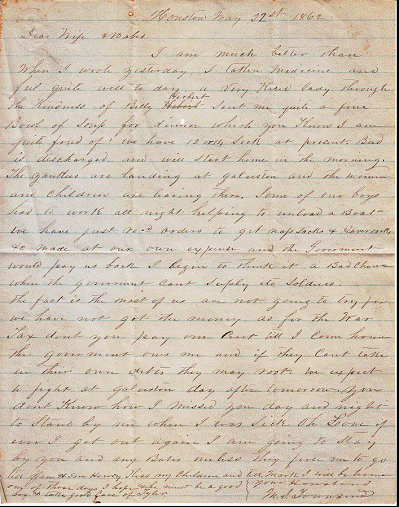 Houston May 27st 1862
Dear Wife & Babes
I am much better than
when I wrote yesterday I taken Medicine and
feel quite well to day. a Very Kind lady through
the kindness of Billy Sent me quite a fine
Bowl of Soup for dinner which you Know I am
quite fond of we have 12 or 15 Sick at present. Bud
is discharged and will start home in the morning.
The yankees are landing at galveston and the women
and Children are leaving there. Some of our boys
had to work all night helping to unload a Boat
we have just rec'd orders to get napSacks & Haversacks
&c made at our own expense and the Government
would pay us back I begin to think it a Bad Chance
when the government Cant Supply its Soldiers.
the fact is the most of us are not going to try for
we have not got the money. as for the War
Tax dont you pay one Cent till I Come home
the government owes me and if they Cant take
in their own debts they may rost. we expect
to fight at galveston day after tomorrow. you
dont Know how I missed you day and night
to Stand by me when I was Sick Oh Love if
ever I get out again I am going to Stay
by you and my Babes unless they force me to go
tell Sam Howdy Kiss my Children and tell I will be home
one of these days I hope he must be a good
boy & take good Care of
your Husband
M.S. Townsend